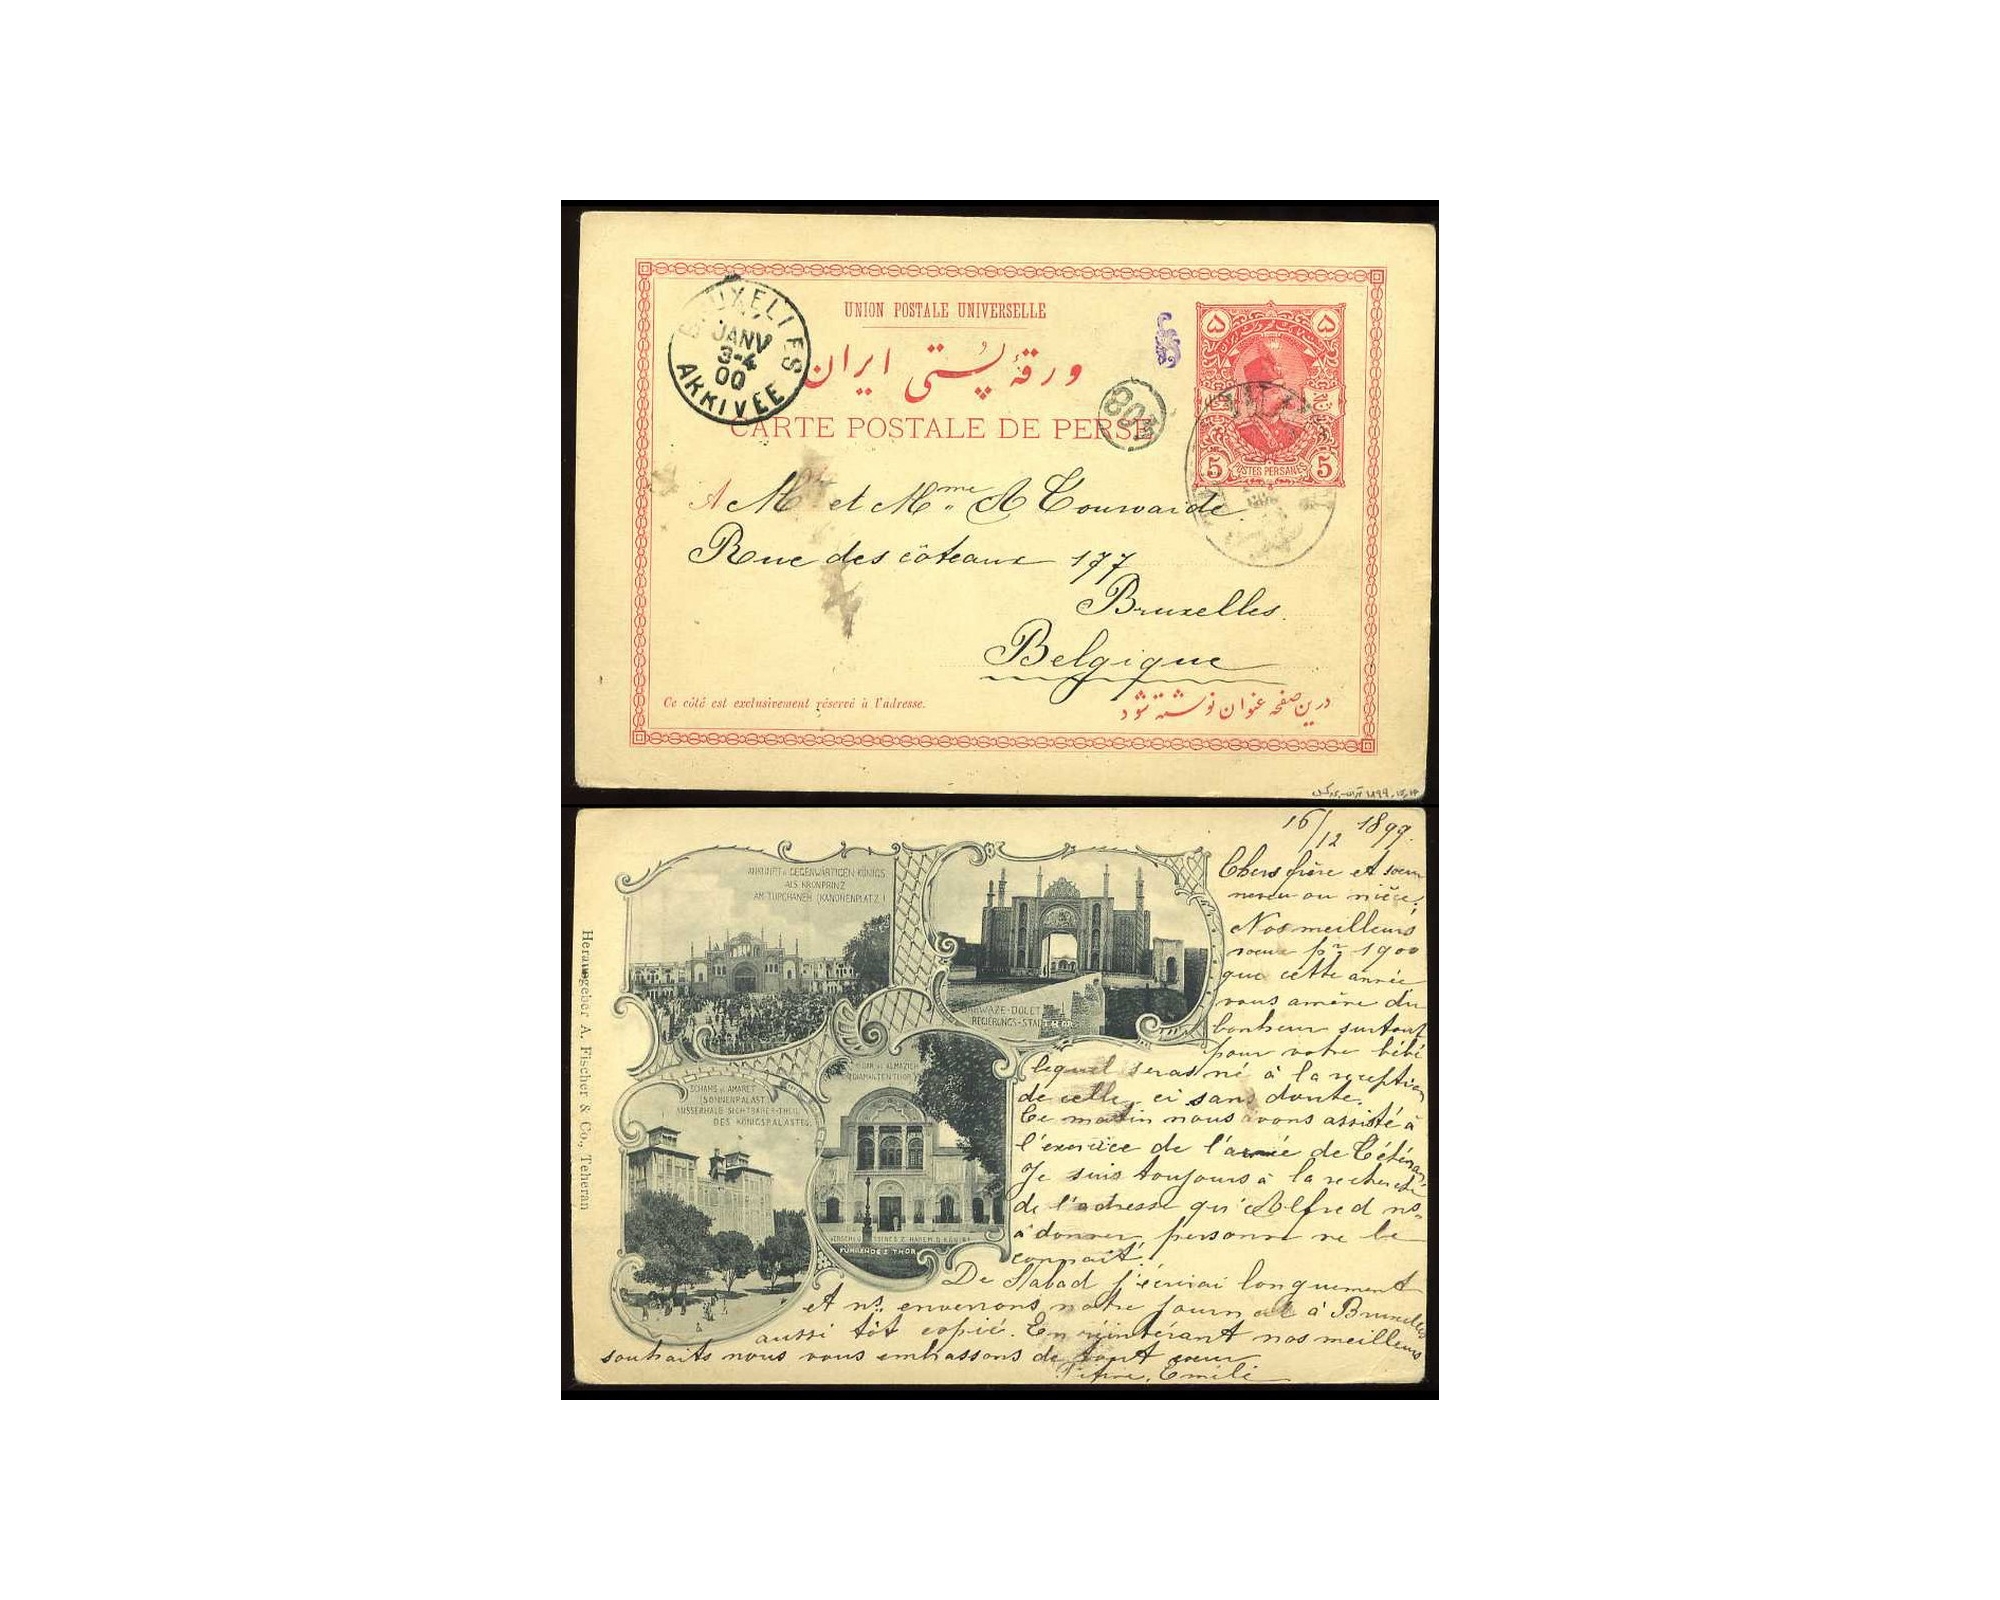 UNION POSTALE UNIVERSELLE
ورقهٔ پُستی ایران
CARTE POSTALE DE PERSE
BRUXELLES
JANV
3-4
00
ARRIVÉE
803
۵ ۵
5 POSTES PERSANES 5
A M et Mme A Tourwaide
Rue des côteaux 177
Bruxelles.
Belgique
Ce côté est exclusivement réservé à l'adresse.
درین صفحه عنوان نوشته شود
16/12 1899.
ANKUNFT D. GEGENWÄRTIGEN KÖNIGS
ALS KRONPRINZ
AM TOPCHANEH (KANONENPLATZ)
DARWAZE-DOLET
REGIERUNGS-STADTTHOR
SCHAMS EL AMARET
(SONNENPALAST)
AUSSERHALB SICHTBARER-THEIL
DES KÖNIGSPALASTES
ALMAZIEH
DIAMANTEN THOR
VERSCHLOSSENES Z. HAREM D. KÖNIGS
FÜHRENDES THOR
Herausgeber A. Fischer & Co., Teheran
Chers frère et sœur
neveu ou nièce,
Nos meilleurs
vœux pr 1900
que cette année
vous amène du
bonheur surtout
pour votre bébé
lequel seras né à la reception
de celle ci sans doute.
Ce matin nous avons assisté à
l'exercice de l'armée de Tétéran,
Je suis toujours à la recherche
de l'adresse qu'Alfred ns
à donner, personne ne le
connait.
De j'écrirai longuement
et ns. enverrons notre journal à Bruxelles
aussi tôt copié. En réintérant nos meilleurs
souhaits nous vous embrassons de tout cœur
Emili